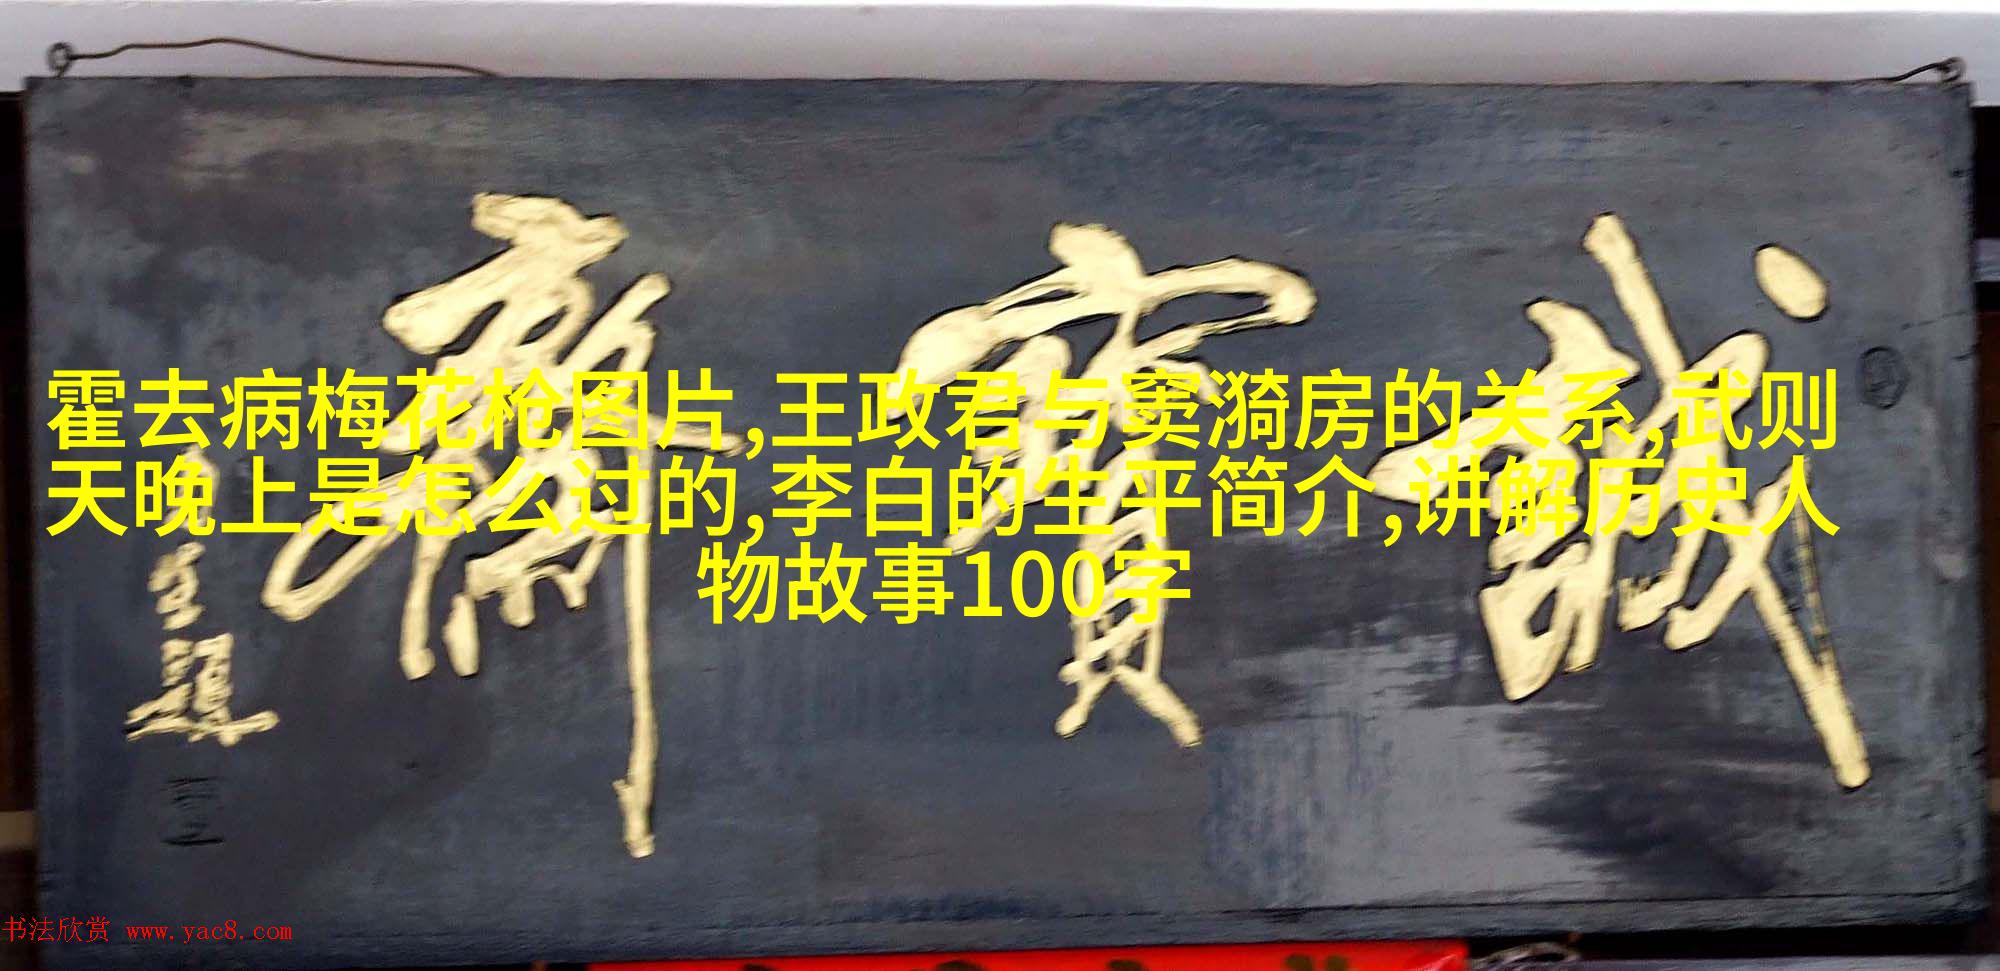 誠實齋
生題
霍去病梅花枪图片,王政君与窦漪房的关系,武则
天晚上是怎么过的,李白的生平简介,讲解历史人
物故事100字
书法欣赏 www.yac8.com